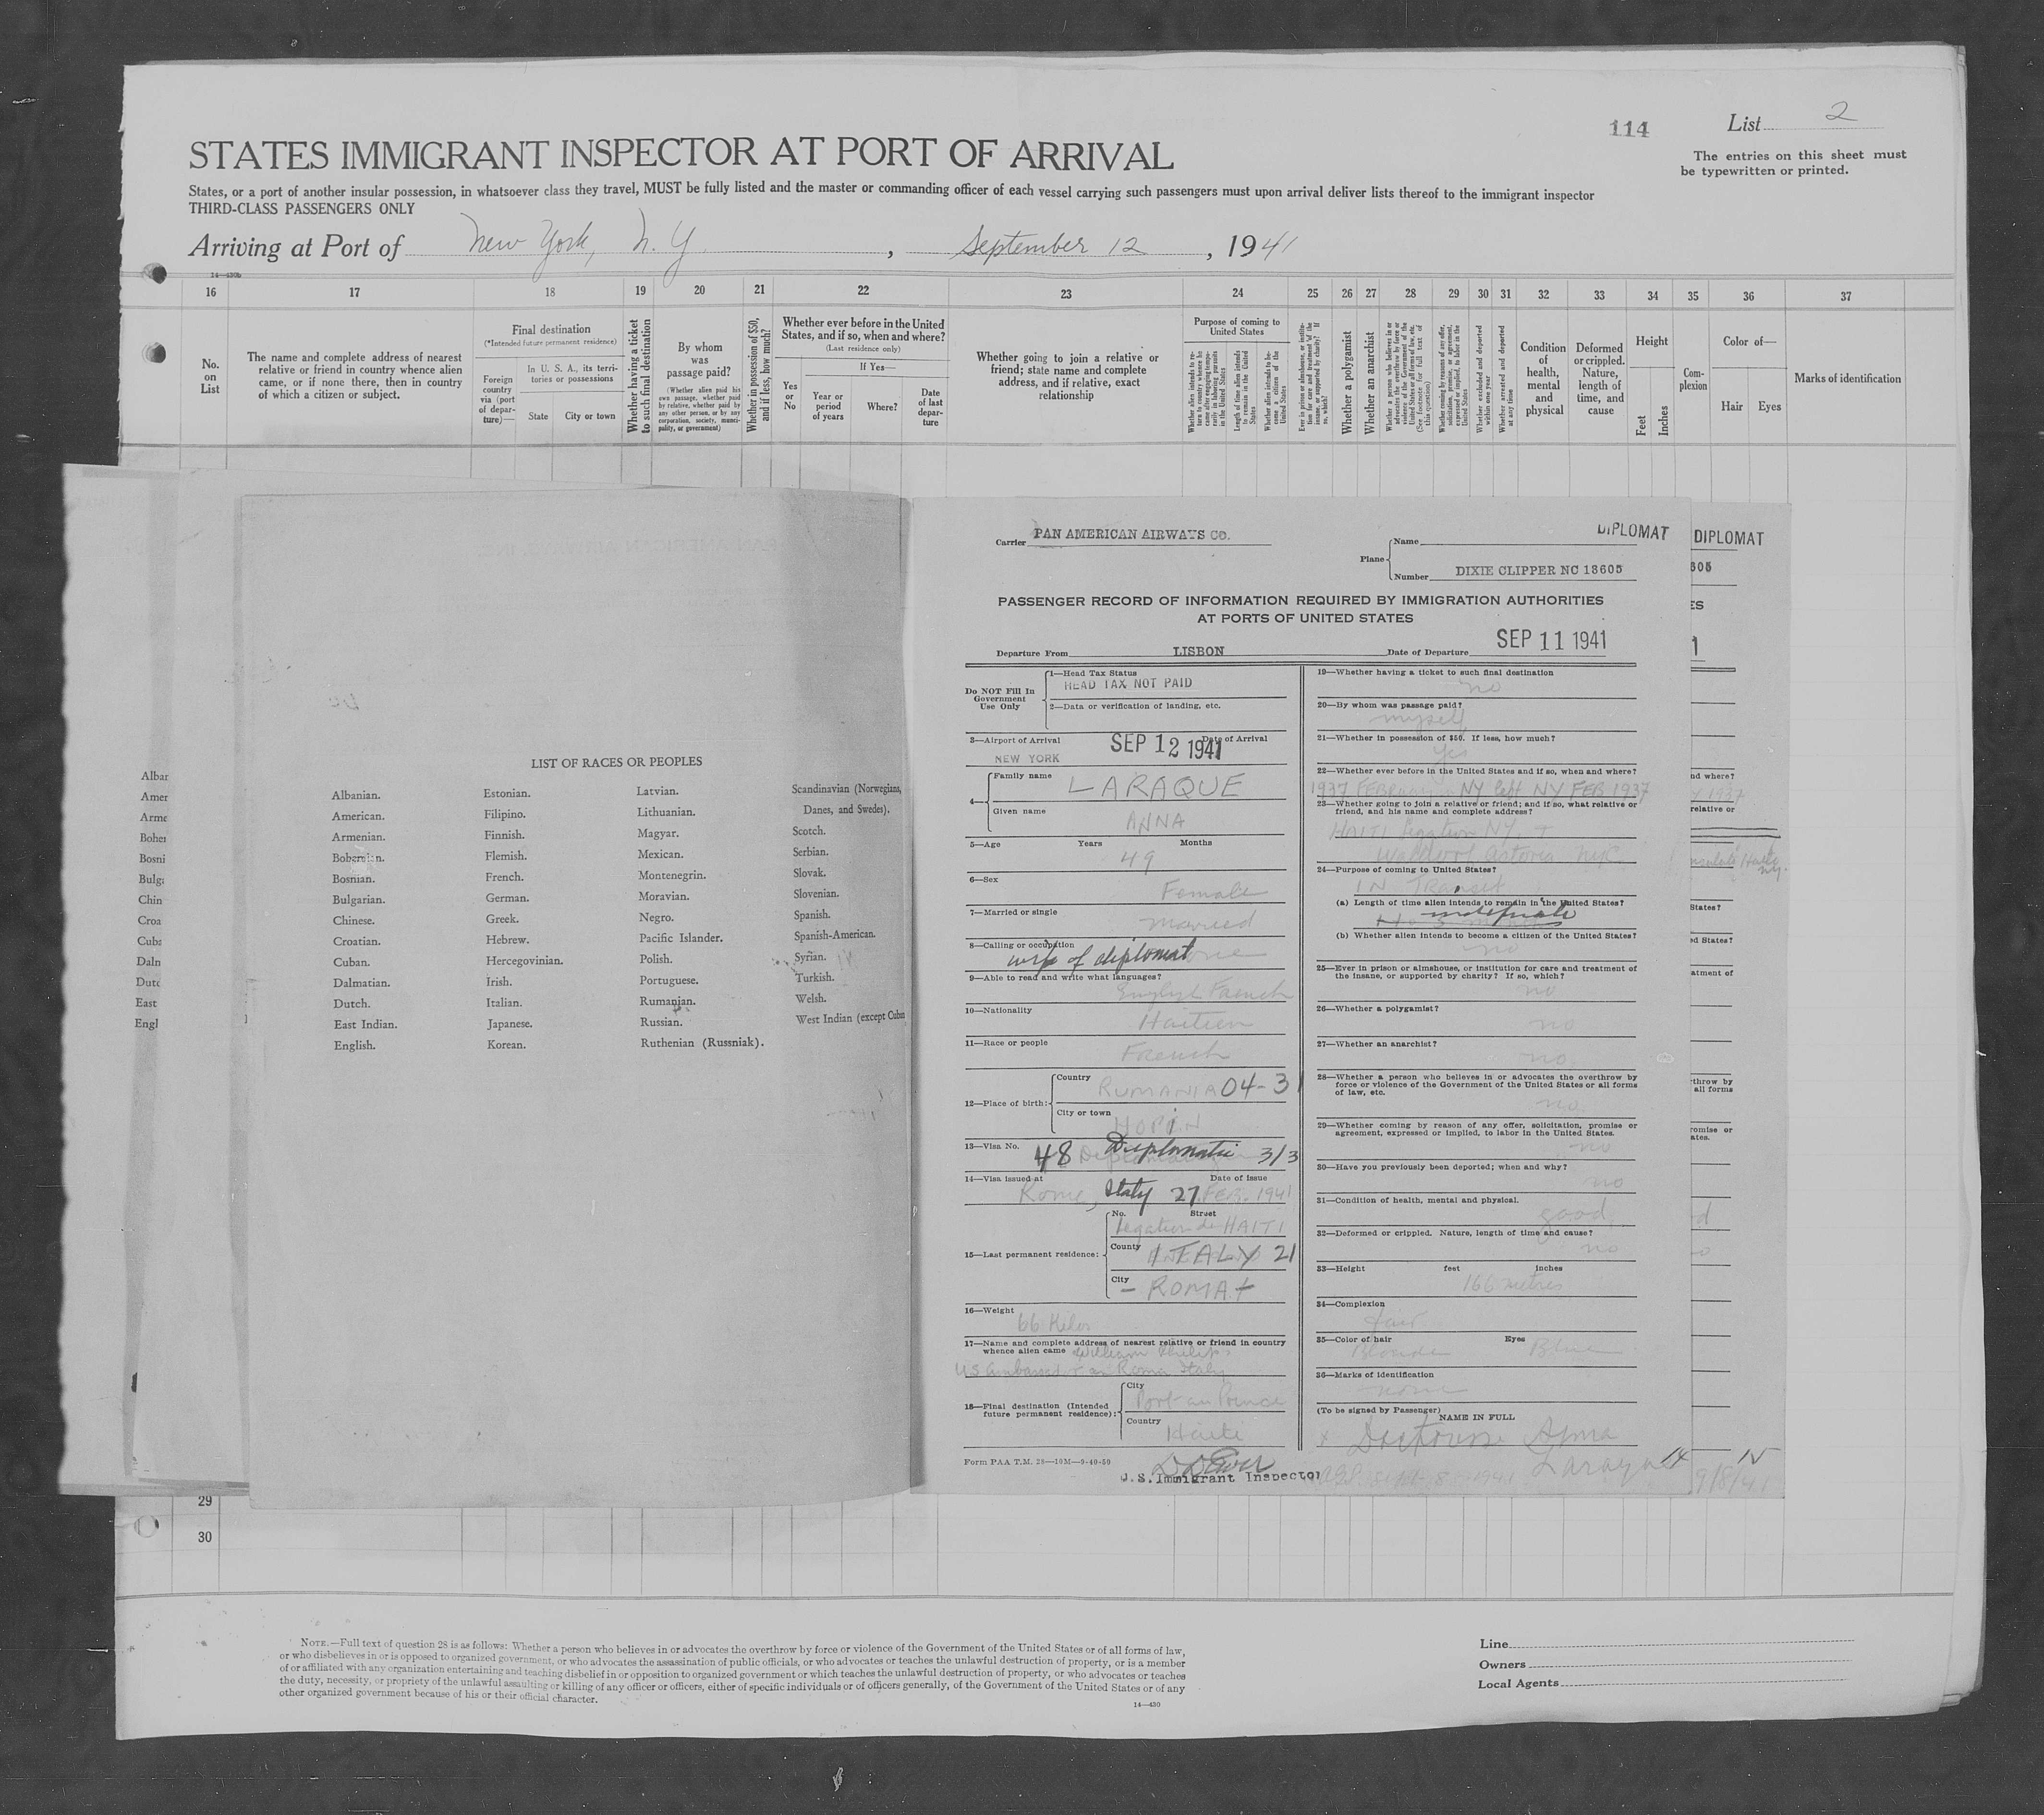 114
List 2
The entries on this sheet must
be typewritten or printed.
STATES IMMIGRANT INSPECTOR AT PORT OF ARRIVAL
States, or a port of another insular possession, in whatsoever class they travel, MUST be fully listed and the master or commanding officer of each vessel carrying such passengers must upon arrival deliver lists thereof to the immigrant inspector
THIRD-CLASS PASSENGERS ONLY
Arriving at Port of New York, N. Y. , September 12 , 1941
14—430b
16 17 18 19 20 21 22 23 24 25 26 27 28 29 30 31 32 33 34 35 36 37
No. on List
The name and complete address of nearest
relative or friend in country whence alien
came, or if none there, then in country
of which a citizen or subject.
Final destination
(*Intended future permanent residence)
Foreign
country
via (port
of depar-
ture)—
In U. S. A., its terri-
tories or possessions
State City or town
Whether having a ticket
to such final destination
By whom
was
passage paid?
(Whether alien paid his
own passage, whether paid
by relative, whether paid by
any other person, or by any
corporation, society, munici-
pality, or government)
Whether in possession of $50,
and if less, how much?
Whether ever before in the United
States, and if so, when and where?
(Last residence only)
If Yes—
Yes
or
No
Year or
period
of years
Where?
Date
of last
depar-
ture
Whether going to join a relative or
friend; state name and complete
address, and if relative, exact
relationship
Purpose of coming to
United States
Whether a polygamist
Whether an anarchist
Condition
of
health,
mental
and
physical
Deformed
or crippled.
Nature,
length of
time, and
cause
Height
Feet
Inches
Com-
plexion
Color of—
Hair Eyes
Marks of identification
LIST OF RACES OR PEOPLES
Albanian.
American.
Armenian.
Bohemian.
Bosnian.
Bulgarian.
Chinese.
Croatian.
Cuban.
Dalmatian.
Dutch.
East Indian.
English.
Estonian.
Filipino.
Finnish.
Flemish.
French.
German.
Greek.
Hebrew.
Hercegovinian.
Irish.
Italian.
Japanese.
Korean.
Latvian.
Lithuanian.
Magyar.
Mexican.
Montenegrin.
Moravian.
Negro.
Pacific Islander.
Polish.
Portuguese.
Rumanian.
Russian.
Ruthenian (Russniak).
Scandinavian (Norwegians,
Danes, and Swedes).
Scotch.
Serbian.
Slovak.
Slovenian.
Spanish.
Spanish-American.
Syrian.
Turkish.
Welsh.
West Indian (except Cuban
Carrier PAN AMERICAN AIRWAYS CO.
DIPLOMAT
DIPLOMAT
Plane
Name
Number DIXIE CLIPPER NC 18605
PASSENGER RECORD OF INFORMATION REQUIRED BY IMMIGRATION AUTHORITIES
AT PORTS OF UNITED STATES
Departure From LISBON Date of Departure SEP 11 1941
Do NOT Fill In
Government
Use Only
1—Head Tax Status
HEAD TAX NOT PAID
2—Data or verification of landing, etc.
3—Airport of Arrival Date of Arrival
NEW YORK SEP 12 1941
4— Family name LARAQUE
Given name ANNA
5—Age Years Months
49
6—Sex Female
7—Married or single married
8—Calling or occupation
wife of diplomat
9—Able to read and write what languages?
English French
10—Nationality Haitien
11—Race or people French
12—Place of birth:
Country RUMANIA 04-31
City or town
13—Visa No. 48 Diplomatic 3/3
14—Visa issued at Date of issue
Rome, Italy 27 FEB. 1941
15—Last permanent residence:
No. Street
Legation de HAITI
County ITALY 21
City — ROMA +
16—Weight 66 Kilos
17—Name and complete address of nearest relative or friend in country
whence alien came William Philips
US ambassador Roma Italy
18—Final destination (Intended
future permanent residence):
City Port au Prince
Country Haiti
Form PAA T.M. 28—10M—9-40-50
U.S. Immigrant Inspector
19—Whether having a ticket to such final destination
no
20—By whom was passage paid?
myself
21—Whether in possession of $50. If less, how much?
yes
22—Whether ever before in the United States and if so, when and where?
1937 FEBRUARY NY left NY FEB 1937
23—Whether going to join a relative or friend; and if so, what relative or
friend, and his name and complete address?
HAITI Legation NY. +
Waldorf Astoria NYC.
24—Purpose of coming to United States?
IN Transit
(a) Length of time alien intends to remain in the United States?
indefinite
(b) Whether alien intends to become a citizen of the United States?
no
25—Ever in prison or almshouse, or institution for care and treatment of
the insane, or supported by charity? If so, which?
no
26—Whether a polygamist?
no
27—Whether an anarchist?
no
28—Whether a person who believes in or advocates the overthrow by
force or violence of the Government of the United States or all forms
of law, etc.
no
29—Whether coming by reason of any offer, solicitation, promise or
agreement, expressed or implied, to labor in the United States.
no
30—Have you previously been deported; when and why?
no
31—Condition of health, mental and physical.
good
32—Deformed or crippled. Nature, length of time and cause?
no
33—Height feet inches
166 metres
34—Complexion
fair
35—Color of hair Eyes
Blonde Blue
36—Marks of identification
none
(To be signed by Passenger)
NAME IN FULL
Anna
Laraque
9/8/41
29
30
NOTE.—Full text of question 28 is as follows: Whether a person who believes in or advocates the overthrow by force or violence of the Government of the United States or of all forms of law,
or who disbelieves in or is opposed to organized government, or who advocates the assassination of public officials, or who advocates or teaches the unlawful destruction of property, or is a member
of or affiliated with any organization entertaining and teaching disbelief in or opposition to organized government or which teaches the unlawful destruction of property, or who advocates or teaches
the duty, necessity, or propriety of the unlawful assaulting or killing of any officer or officers, either of specific individuals or of officers generally, of the Government of the United States or of any
other organized government because of his or their official character.
14—430
Line
Owners
Local Agents